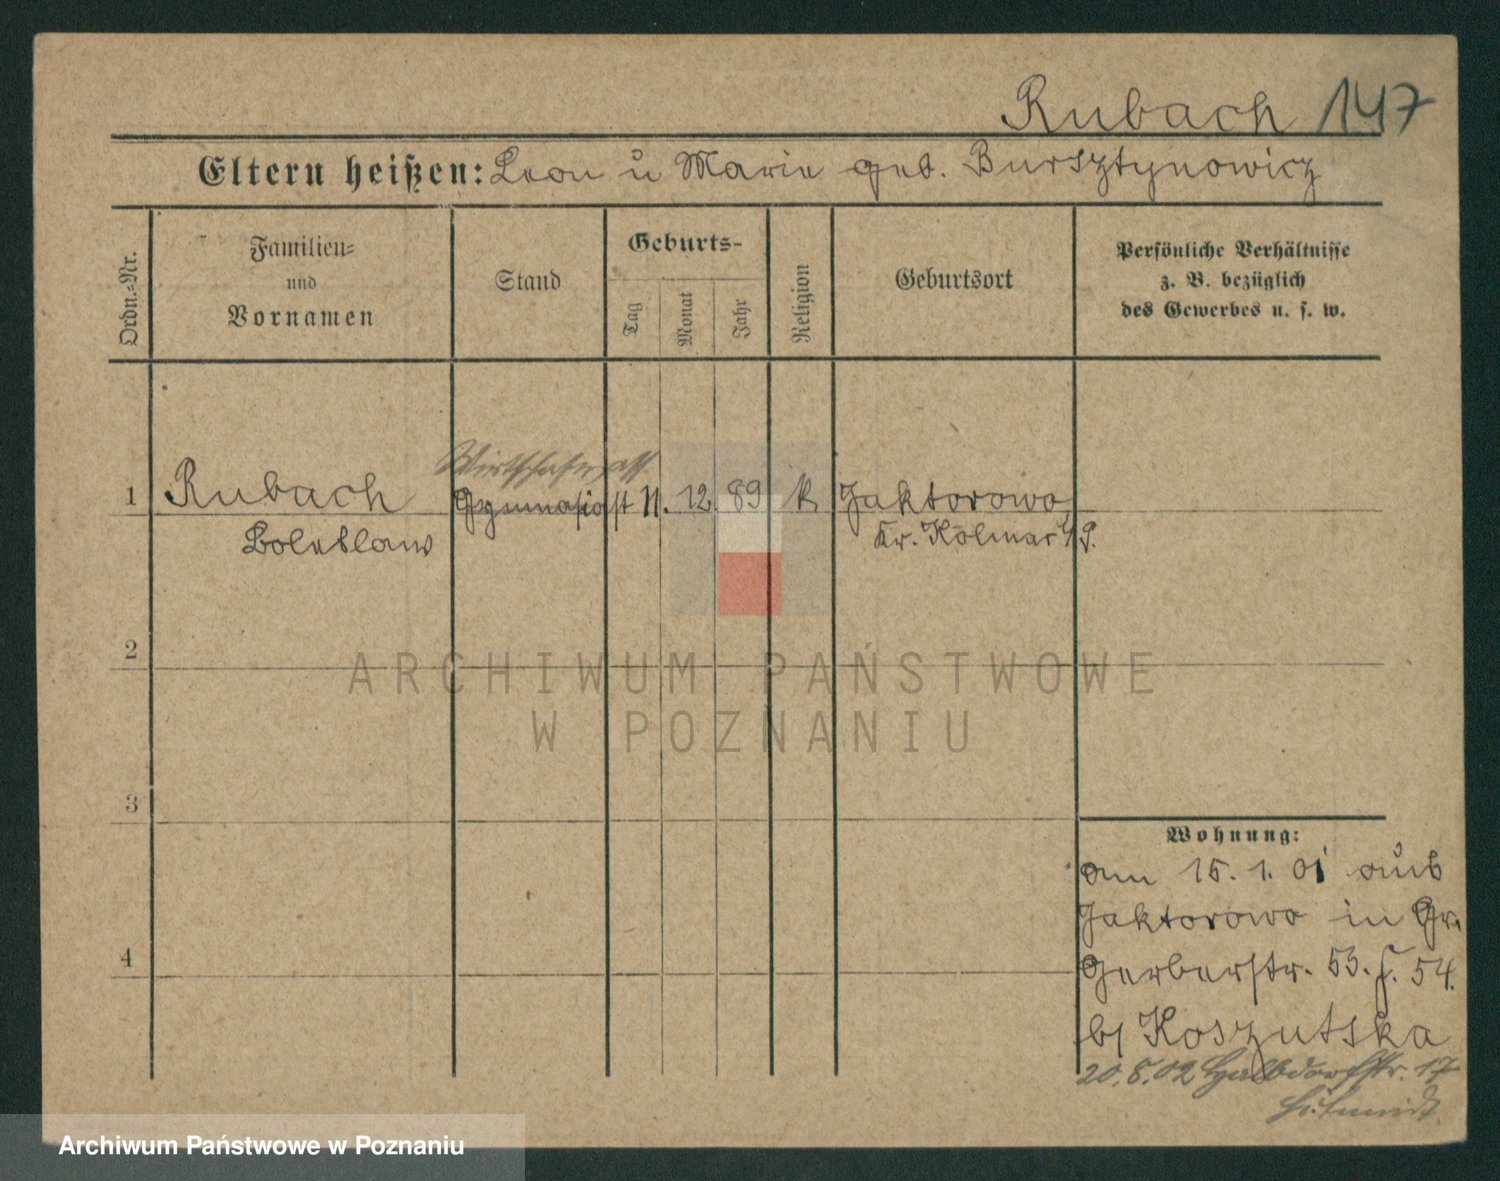 Rubach 147
Eltern heißen: Leon u Marie geb. Bursztynowicz
Ordn.=Nr.
Familien=
und
Vornamen
Stand
Geburts-
Tag
Monat
Jahr
Religion
Geburtsort
Persönliche Verhältnisse
z. B. bezüglich
des Gewerbes u. s. w.
Wirtschafts ass.
1 Rubach Gymnasiast 11. 12. 89 k Jaktorowo
Boleslaw Kr. Kolmar i/P.
2
ARCHIWUM PAŃSTWOWE
W POZNANIU
3
Wohnung:
am 15. 1. 01 aus
Jaktorowo in Gr.
4
Gerberstr. 53. f. 54.
b/ Koszutska
20. 5. 02 Halbdorfstr. 17
Schmidt
Archiwum Państwowe w Poznaniu